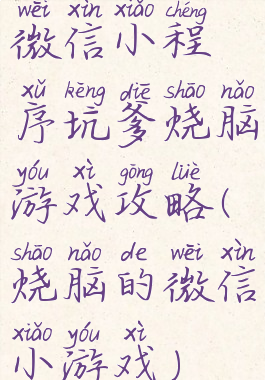 wēi xìn xiǎo chéng
微信小程
xǔ kēng diē shāo nǎo
序坑爹烧脑
yóu xì gōng lüè
游戏攻略(
shāo nǎo de wēi xìn
烧脑的微信
xiǎo yóu xì
小游戏)